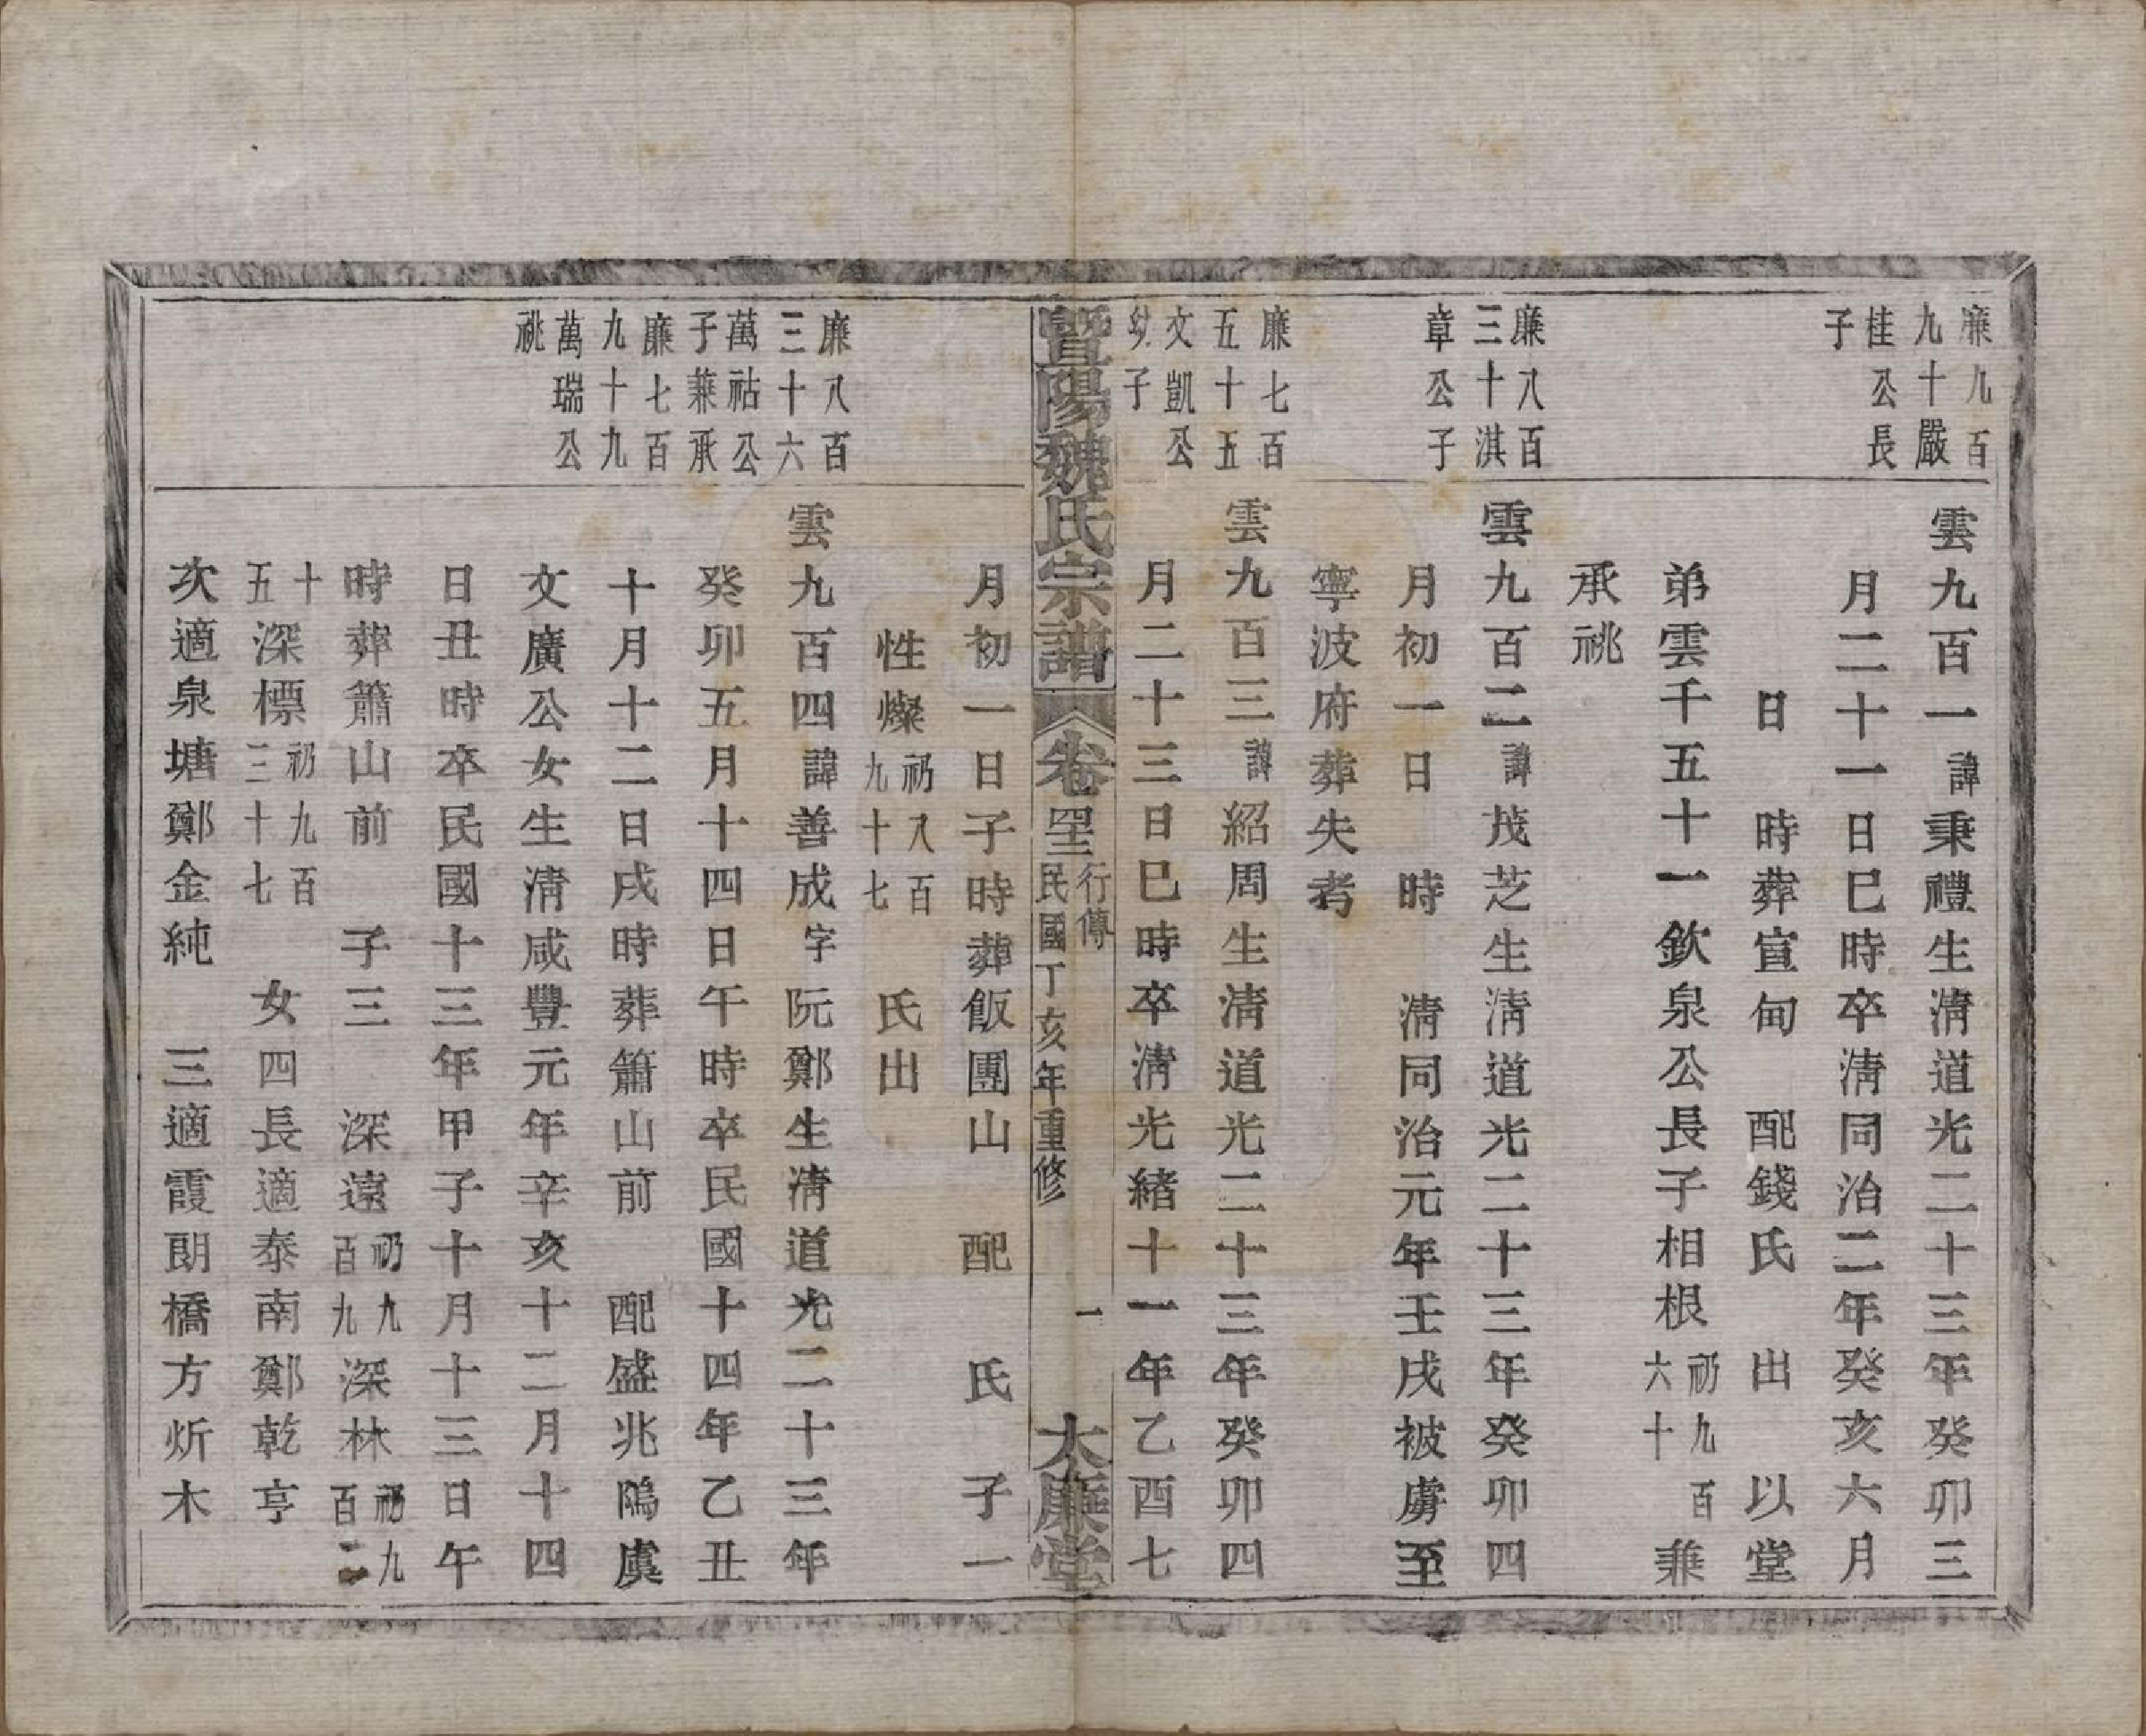 廉九百
九十嚴
桂公長
子
雲九百一諱秉禮生淸道光二十三年癸卯三
月二十一日巳時卒淸同治二年癸亥六月
日　時葬宣甸　配錢氏　出　以堂
弟雲千五十一欽泉公長子相根祁九百六十兼
承祧
廉八百
三十淇
章公子
雲九百二諱茂芝生淸道光二十三年癸卯四
月初一日　時　淸同治元年壬戌被虜至
寧波府葬失考
廉七百
五十五
文凱公
幼子
雲九百三諱紹周生淸道光二十三年癸卯四
月二十三日巳時卒淸光緒十一年乙酉七
暨陽魏氏宗譜　卷四十三　行傳　民國丁亥年重修　一　大廉堂
月初一日子時葬飯團山　配　氏　子一
性燦祁八百九十七　氏出
廉八百
三十六
萬祜公
子兼承
廉七百
九十九
萬瑞公
祧
雲九百四諱善成字阮鄭生淸道光二十三年
癸卯五月十四日午時卒民國十四年乙丑
十月十二日戌時葬簫山前　配盛兆隖虞
文廣公女生淸咸豐元年辛亥十二月十四
日丑時卒民國十三年甲子十月十三日午
時葬簫山前　子三　深遠祁九百九深林祁九百二
十五深標祁九百三十七　女四長適泰南鄭乾亨
次適泉塘鄭金純　三適霞朗橋方炘木